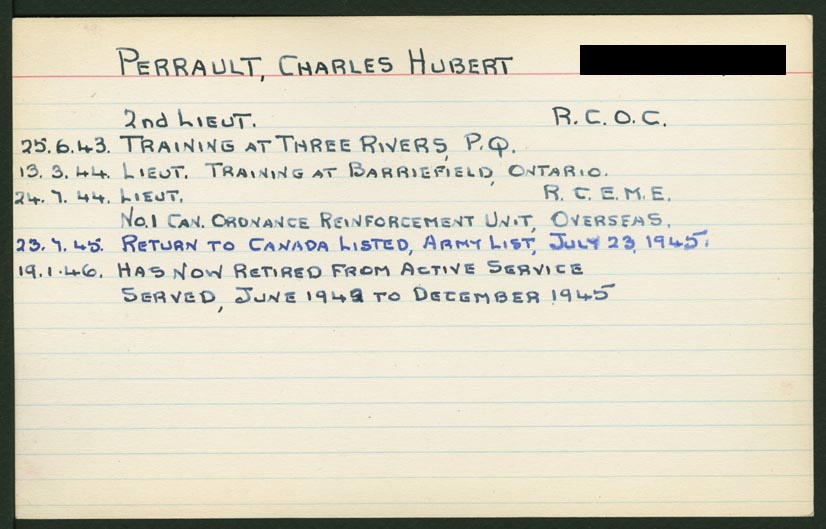 PERRAULT, CHARLES HUBERT
2nd LIEUT. R.C.O.C.
25.6.43. TRAINING AT THREE RIVERS, P.Q.
13.3.44. LIEUT. TRAINING AT BARRIEFIELD, ONTARIO.
24.7.44. LIEUT. R.C.E.M.E.
No.1 CAN. ORDNANCE REINFORCEMENT UNIT, OVERSEAS.
23.7.45. RETURN TO CANADA LISTED, ARMY LIST, JULY 23, 1945.
19.1.46. HAS NOW RETIRED FROM ACTIVE SERVICE
SERVED, JUNE 1942 TO DECEMBER 1945